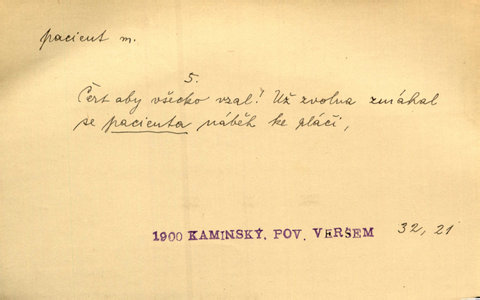 pacient m.
5.
Čert aby všecko vzal! Už zvolna zmáhal
se pacienta náběh ke pláči,
1900 KAMINSKÝ, POV. VERŠEM 32, 21